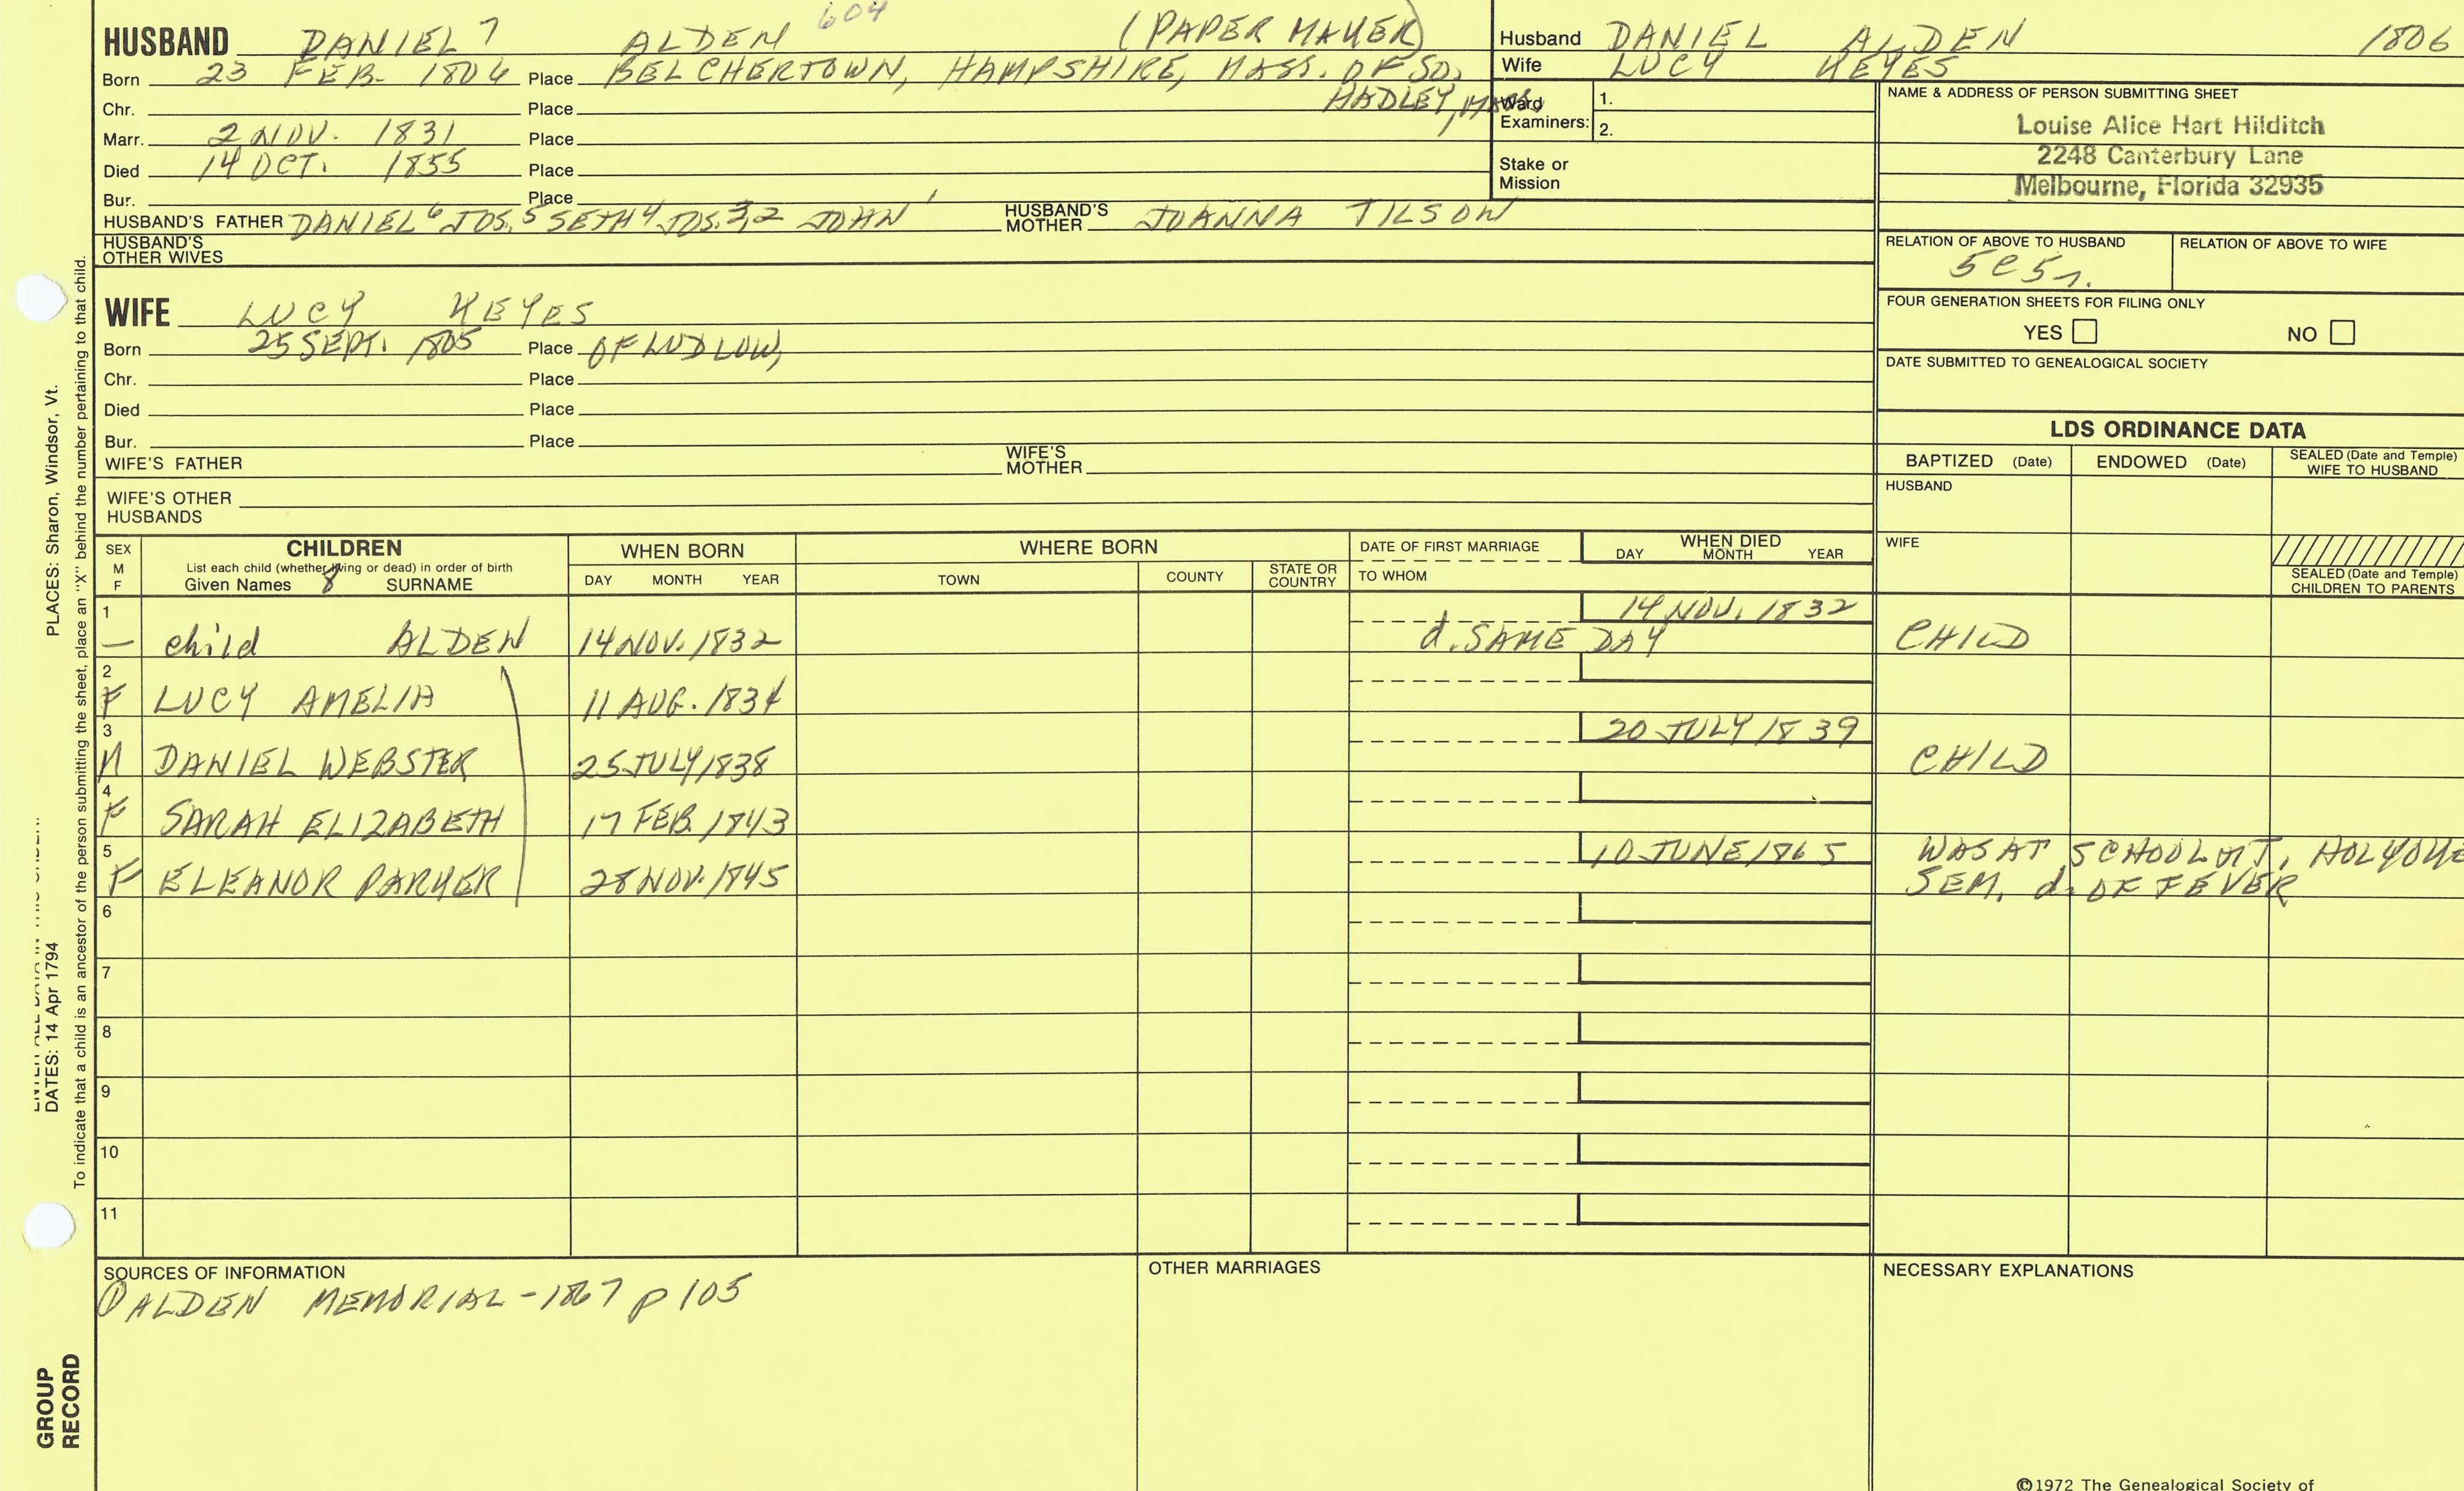 HUSBAND DANIEL 7 ALDEN 604 (PAPER MAKER)
Born 23 FEB. 1806 Place BELCHERTOWN, HAMPSHIRE, MASS. OF SO. HADLEY, MASS
Chr. Place
Marr. 2 NOV. 1831 Place
Died 14 OCT. 1855 Place
Bur. Place
HUSBAND'S FATHER DANIEL 6 JOS. 5 SETH 4 JOS. 3,2 JOHN 1 HUSBAND'S MOTHER JOANNA TILSON
HUSBAND'S OTHER WIVES
Husband DANIEL ALDEN 1806
Wife LUCY KEYES
Ward Examiners: 1.
2.
Stake or Mission
NAME & ADDRESS OF PERSON SUBMITTING SHEET
Louise Alice Hart Hilditch
2248 Canterbury Lane
Melbourne, Florida 32935
RELATION OF ABOVE TO HUSBAND RELATION OF ABOVE TO WIFE
5C5r.
FOUR GENERATION SHEETS FOR FILING ONLY
YES NO
DATE SUBMITTED TO GENEALOGICAL SOCIETY
WIFE LUCY KEYES
Born 25 SEPT. 1805 Place OF LUDLOW,
Chr. Place
Died Place
Bur. Place
WIFE'S FATHER WIFE'S MOTHER
WIFE'S OTHER HUSBANDS
LDS ORDINANCE DATA
BAPTIZED (Date) ENDOWED (Date) SEALED (Date and Temple) WIFE TO HUSBAND
HUSBAND
WIFE
SEALED (Date and Temple) CHILDREN TO PARENTS
SEX M F CHILDREN WHEN BORN WHERE BORN DATE OF FIRST MARRIAGE WHEN DIED
List each child (whether living or dead) in order of birth
Given Names 8 SURNAME DAY MONTH YEAR TOWN COUNTY STATE OR COUNTRY TO WHOM DAY MONTH YEAR
1 14 NOV. 1832
— child ALDEN 14 NOV. 1832 d. SAME DAY CHILD
2
F LUCY AMELIA 11 AUG. 1834
3 20 JULY 1839
M DANIEL WEBSTER 25 JULY 1838 CHILD
4
F SARAH ELIZABETH 17 FEB. 1843
5 10 JUNE 1865 WAS AT SCHOOL MT. HOLYOKE
F ELEANOR PARKER 28 NOV. 1845 SEM. d. OF FEVER
6
7
8
9
10
11
SOURCES OF INFORMATION
① ALDEN MEMORIAL - 1867 p 105
OTHER MARRIAGES
NECESSARY EXPLANATIONS
©1972 The Genealogical Society of
PLACES: Sharon, Windsor, Vt.
DATES: 14 Apr 1794
To indicate that a child is an ancestor of the person submitting the sheet, place an "X" behind the number pertaining to that child.
GROUP RECORD